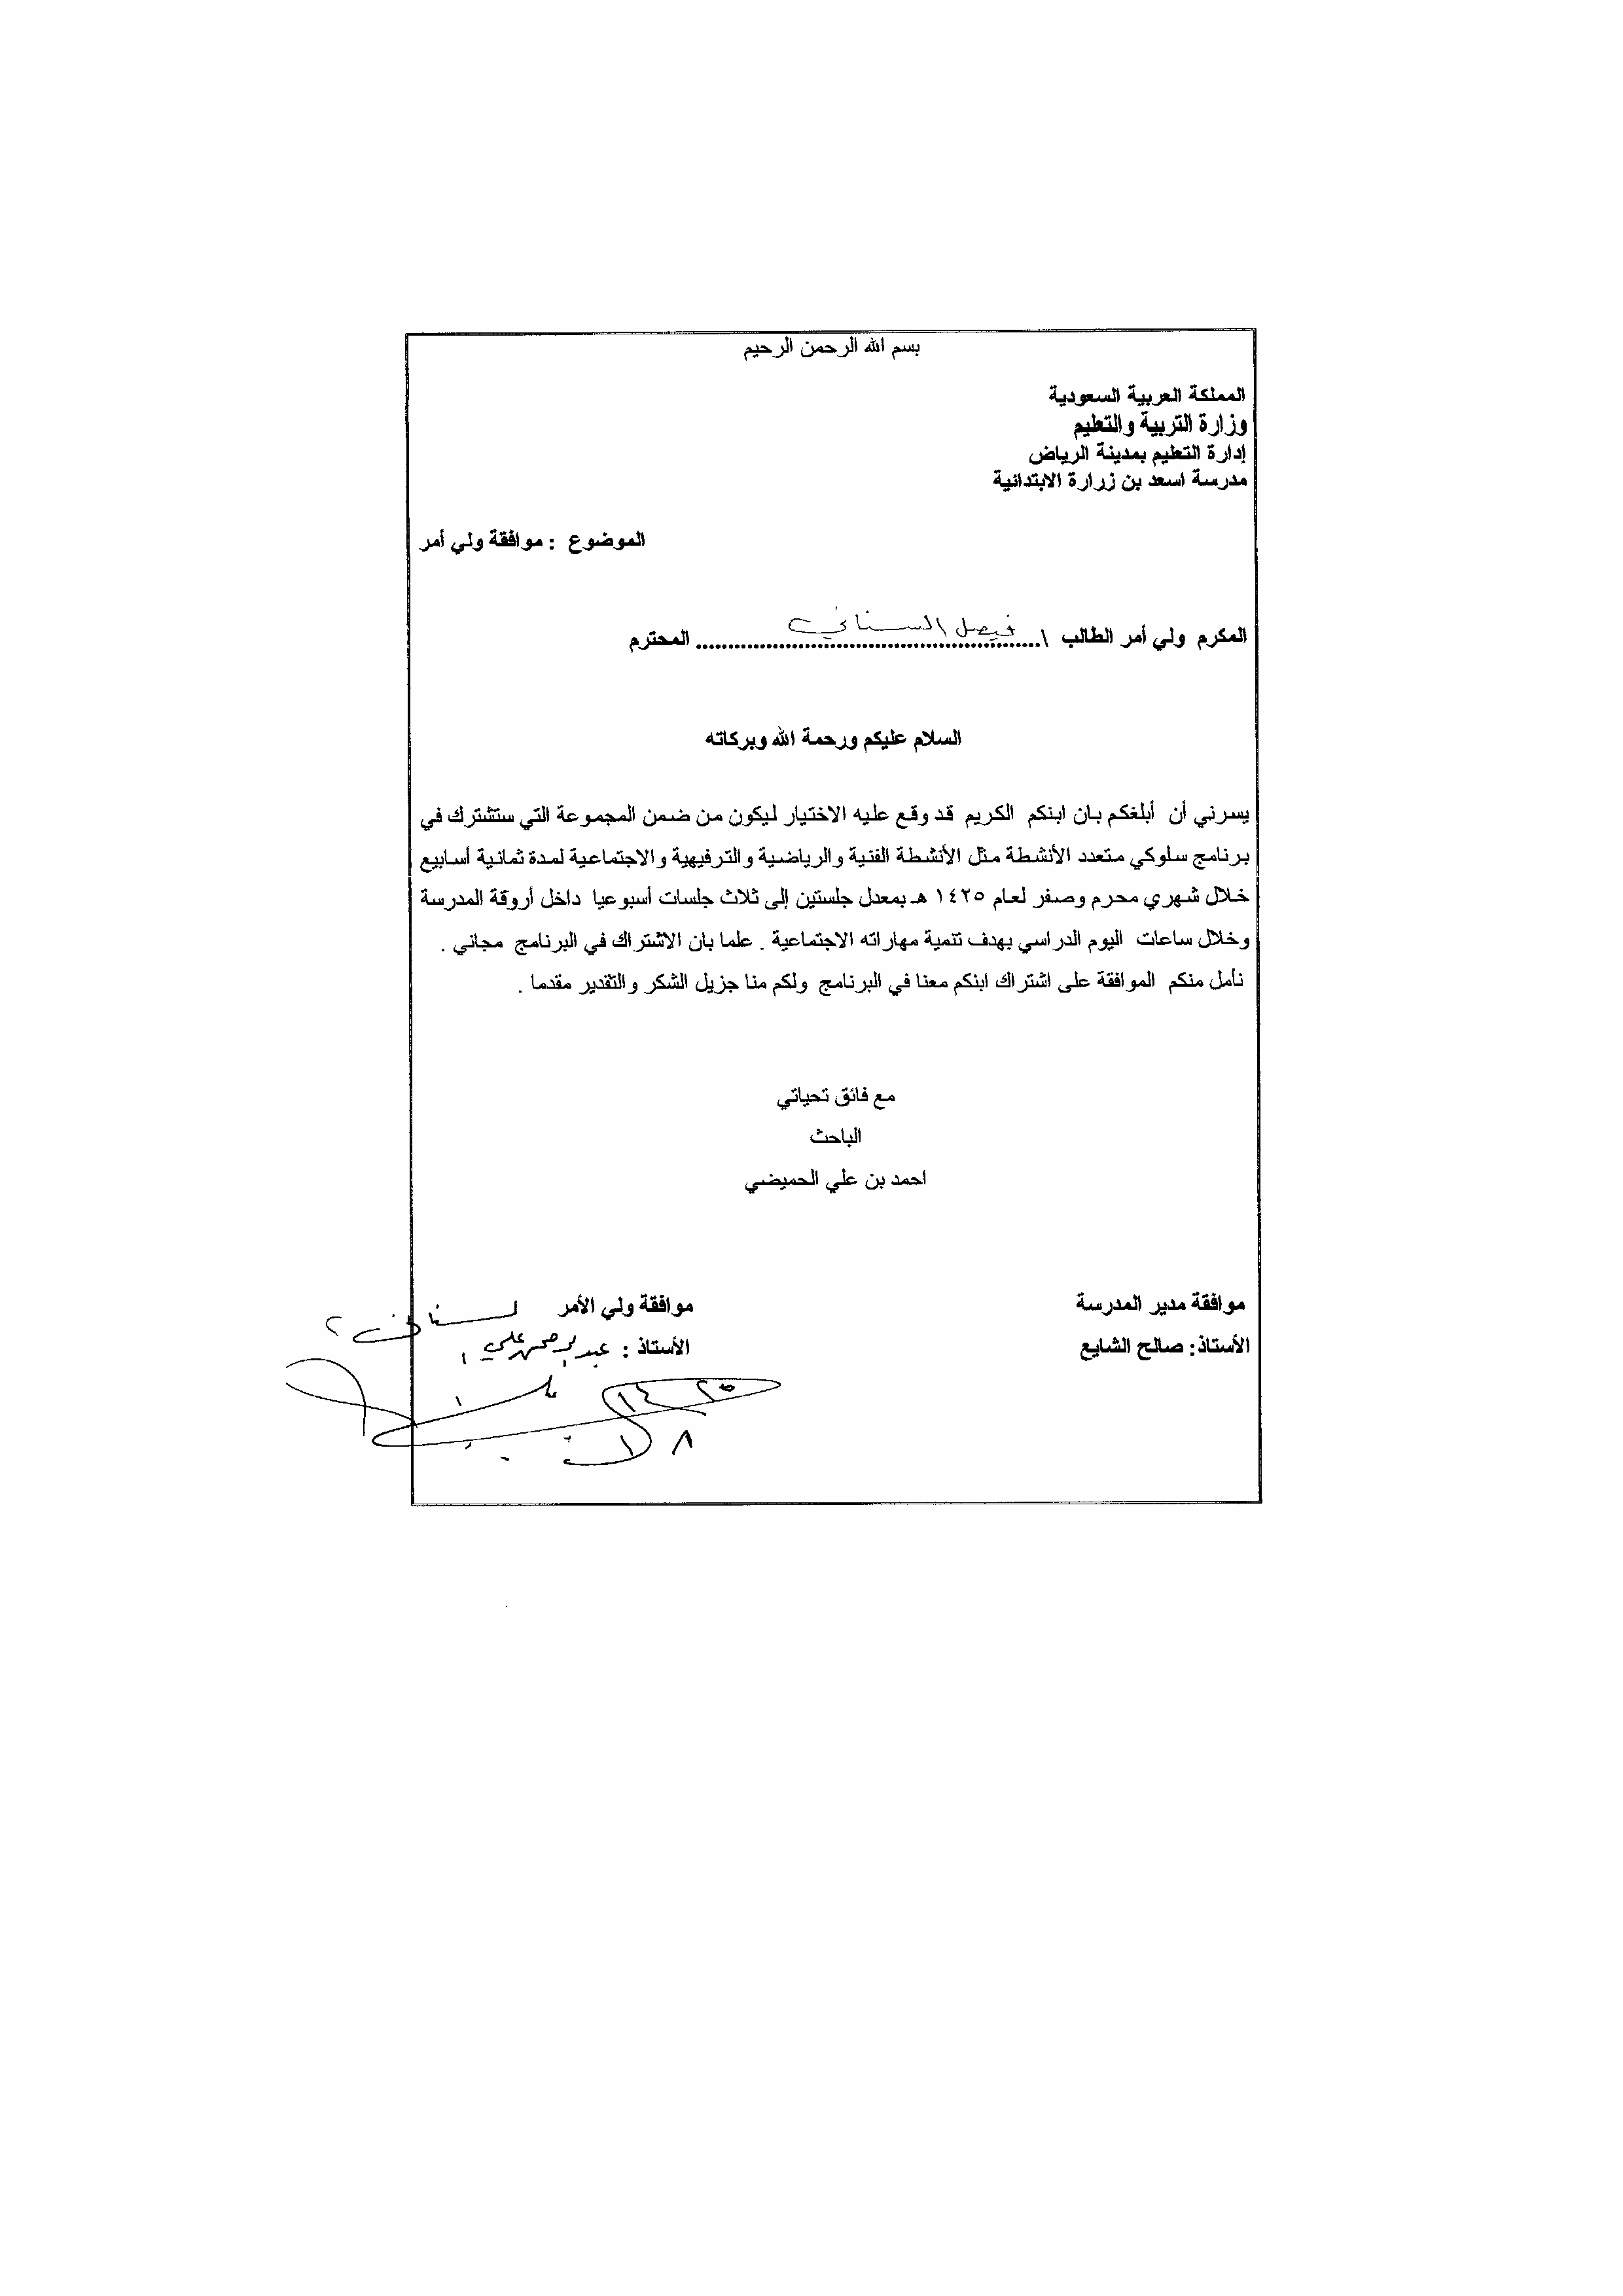 بسم الله الرحمن الرحيم
المملكة العربية السعودية
وزارة التربية والتعليم
إدارة التعليم بمدينة الرياض
مدرسة اسعد بن زرارة الابتدائية
الموضوع : موافقة ولي أمر
المكرم ولي أمر الطالب \ فيصل السناني المحترم
السلام عليكم ورحمة الله وبركاته
يسرني أن أبلغكم بان ابنكم الكريم قد وقع عليه الاختيار ليكون من ضمن المجموعة التي ستشترك في
برنامج سلوكي متعدد الأنشطة مثل الأنشطة الفنية والرياضية والترفيهية والاجتماعية لمدة ثمانية أسابيع
خلال شهري محرم وصفر لعام ١٤٢٥ هـ بمعدل جلستين إلى ثلاث جلسات أسبوعيا داخل أروقة المدرسة
وخلال ساعات اليوم الدراسي بهدف تنمية مهاراته الاجتماعية . علما بان الاشتراك في البرنامج مجاني .
نأمل منكم الموافقة على اشتراك ابنكم معنا في البرنامج ولكم منا جزيل الشكر والتقدير مقدما .
مع فائق تحياتي
الباحث
احمد بن علي الحميضي
موافقة مدير المدرسة
الأستاذ: صالح الشايع
موافقة ولي الأمر
الأستاذ :